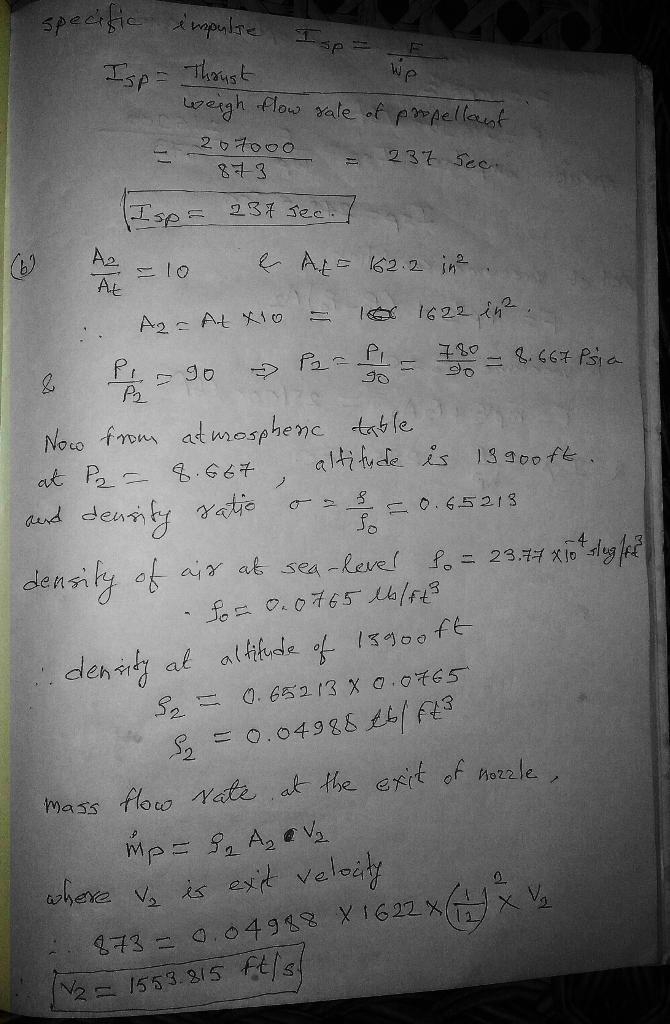 specific impulse Isp = F / ẇp
Isp = Thrust / weigh flow rate of propellant
= 207000 / 873 = 237 sec.
Isp = 237 sec.
(b) A2/At = 10 & At = 162.2 in²
∴ A2 = At × 10 = 1622 in².
& P1/P2 = 90 ⇒ P2 = P1/90 = 780/90 = 8.667 Psia
Now from atmospheric table
at P2 = 8.667, altitude is 13900 ft.
and density ratio σ = ρ/ρ0 = 0.65213
density of air at sea-level ρ0 = 23.77 × 10⁻⁴ slug/ft³
ρ0 = 0.0765 lb/ft³
∴ density at altitude of 13900 ft
ρ2 = 0.65213 × 0.0765
ρ2 = 0.04988 lb/ft³
mass flow rate at the exit of nozzle,
ṁp = ρ2 A2 V2
where V2 is exit velocity
∴ 873 = 0.04988 × 1622 × (1/12)² × V2
V2 = 1553.815 ft/s